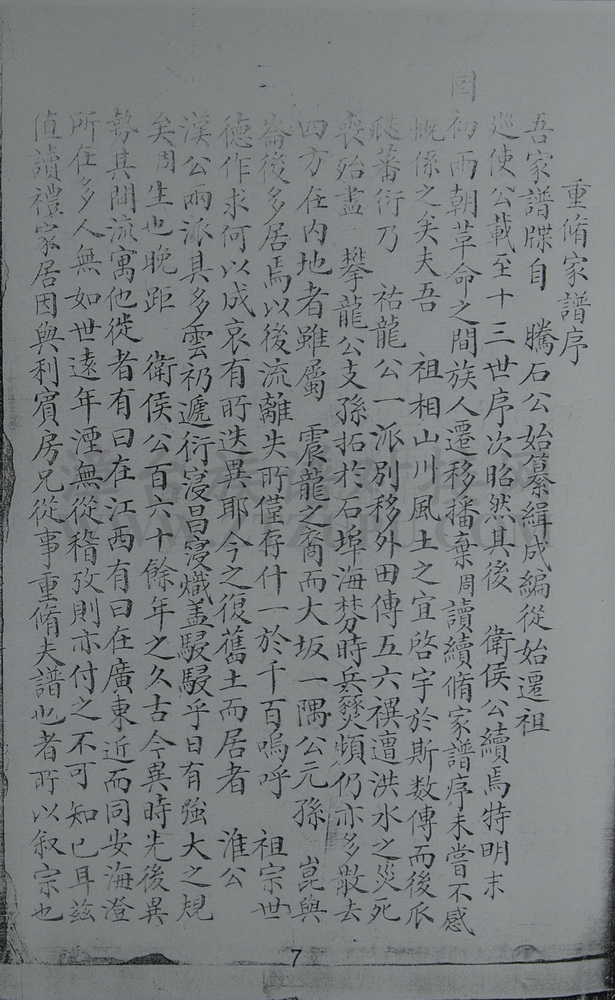 重脩家譜序
吾家譜牒自　騰石公始纂緝成編從始遷祖
巡使公載至十三世序次昭然其後　衛侯公續焉特明末
國初兩朝革命之間族人遷移播棄周讀續脩家譜序未嘗不感
慨係之矣夫吾　祖相山川風土之宜啓宇於斯数傳而後瓜
瓞蕃衍乃　祐龍公一派別移外田傳五六禩遭洪水之災死
喪殆盡　攀龍公支孫拓於石埠海棼時兵燹頻仍亦多散去
四方在内地者雖屬　震龍之裔而大坂一隅公元孫　崑與
崙後多居焉以後流離失所僅存什一於千百嗚呼　祖宗世
德作求何以成哀有所迭異耶今之復舊土而居者　淮公
漢公兩派具多雲礽遞衍寖昌寖熾盖駸駸乎日有強大之規
矣周生也晚距　衛侯公百六十餘年之久古今異時先後異
勢其間流寓他徙者有曰在江西有曰在廣東近而同安海澄
所在多人無如世遠年湮無從稽攷則亦付之不可知已耳茲
值讀禮家居因與利賓房兄從事重脩夫譜也者所以叙宗也
7